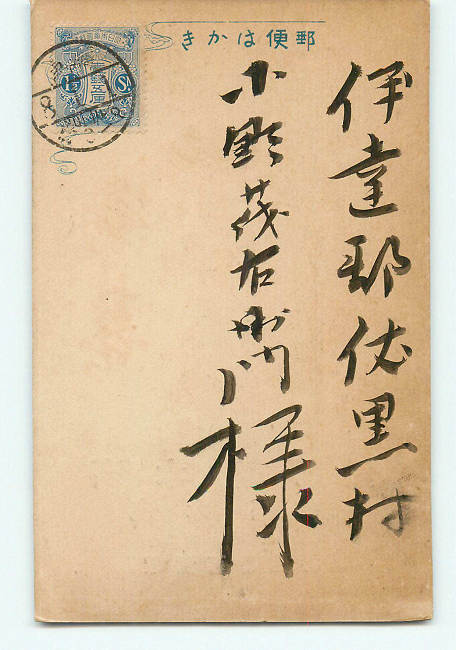 郵便はかき
伊達郡伏黒村
小野茂右衛門様